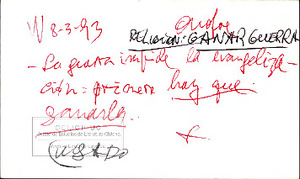 8-3-93
RELIGION: GANAR GUERRA
- La guerra impide la evangeliza-
ción: primero hay que
ganarla.
USADO